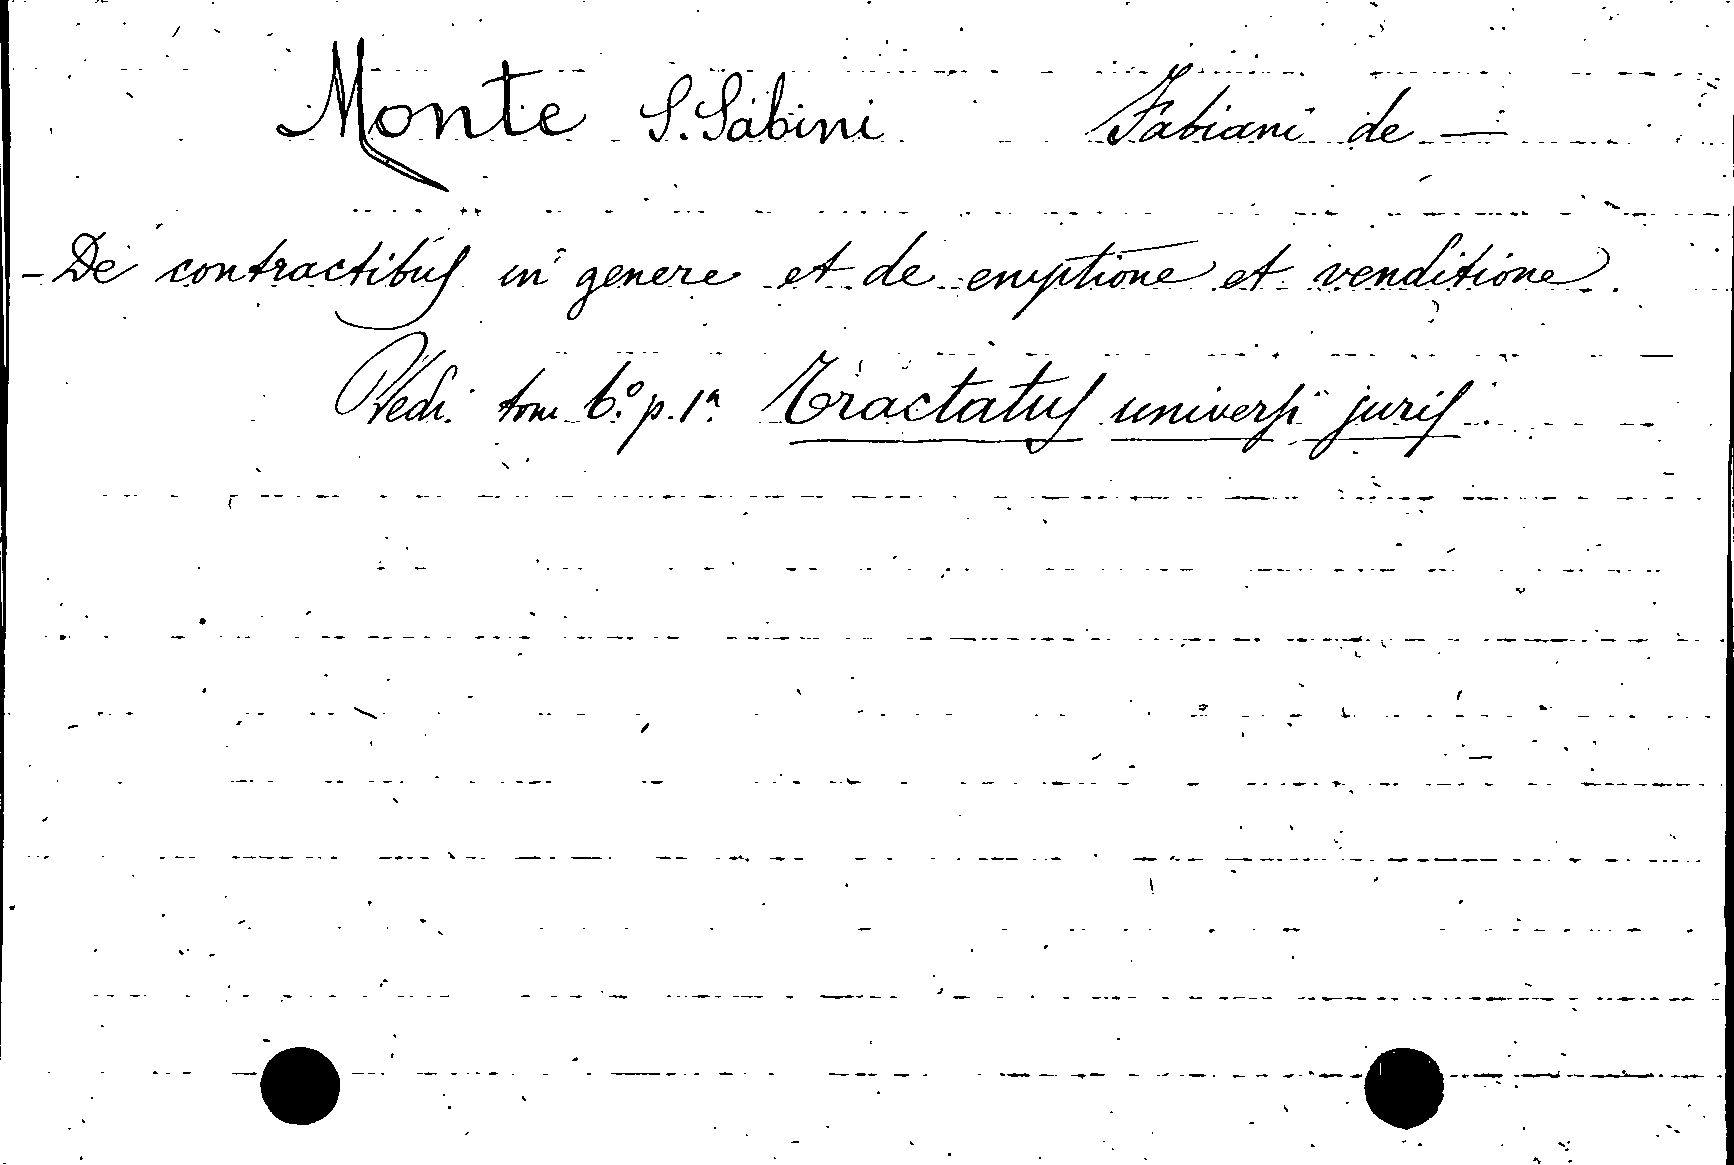 Monte S. Sabini Fabiani de —
- De contractibus in genere et de emptione et venditione.
Vedi tom 6.º p. 1ª Tractatus universi juris